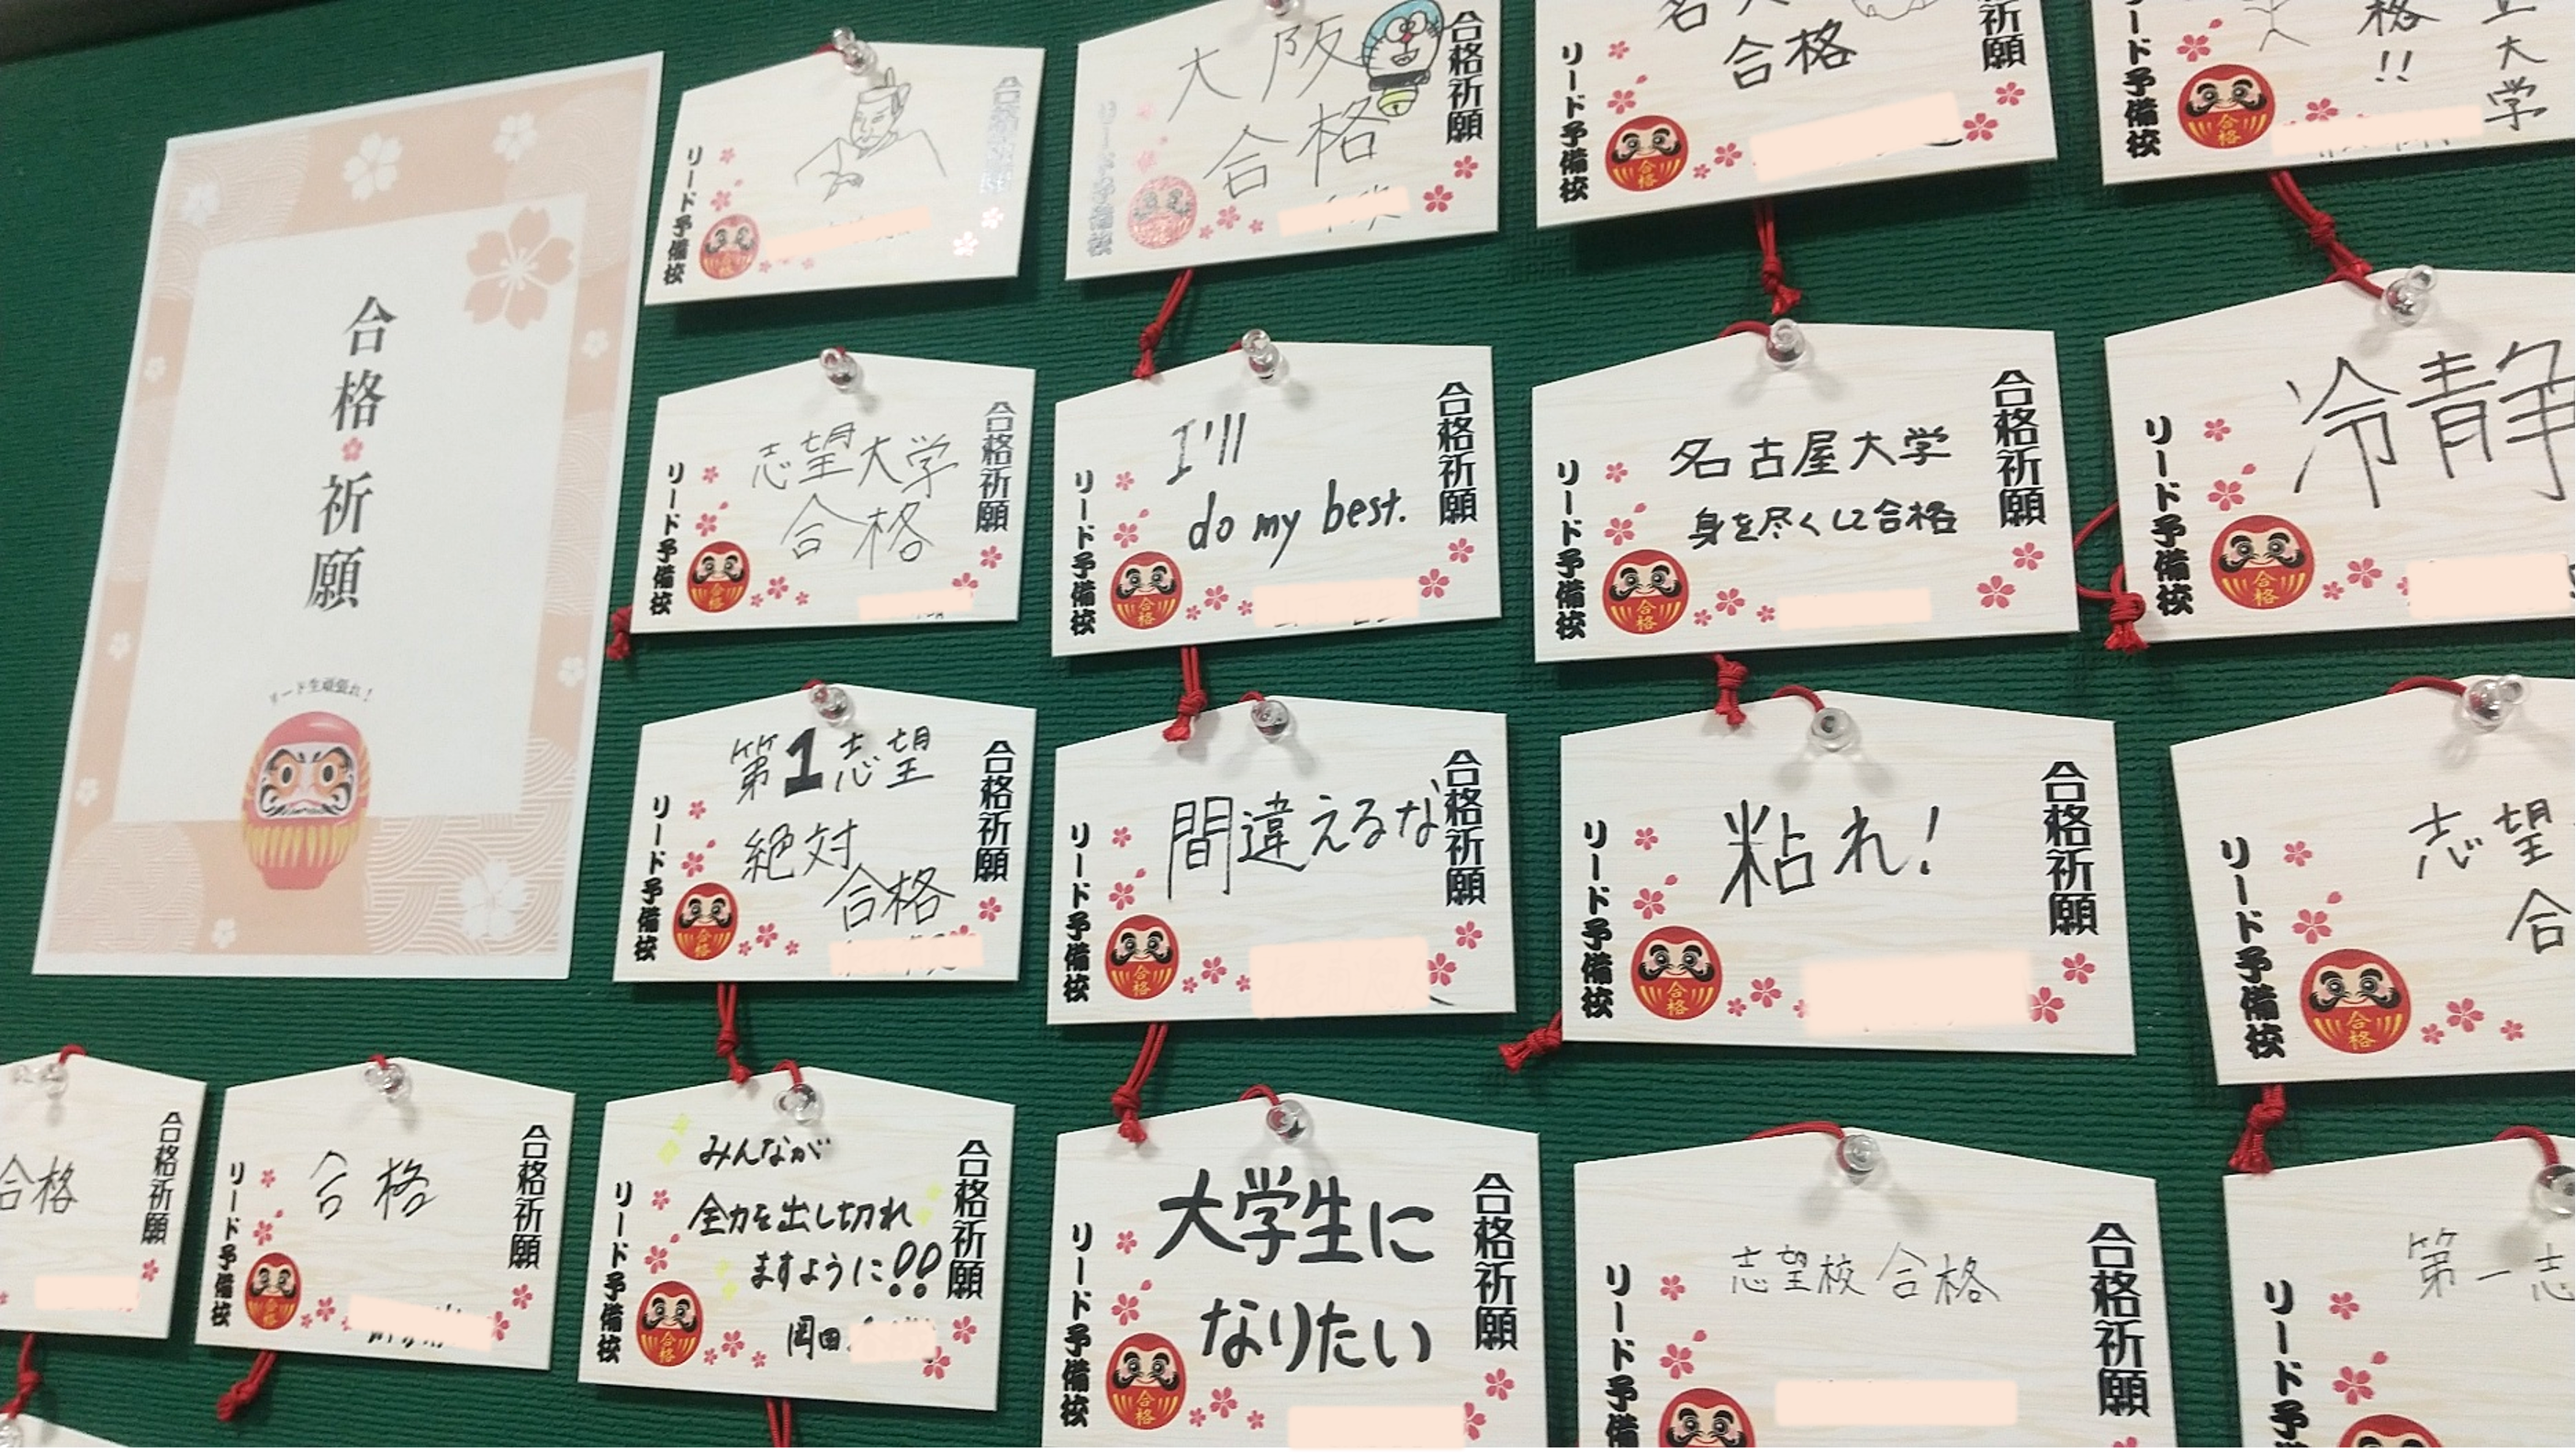 合格祈願
リード生頑張れ!
合格祈願
リード予備校
大阪
合格
合格祈願
リード予備校
合格
合格
祈願
リード予備校
合格
格!!
大学
リード予備校
合格
志望大学
合格
合格祈願
リード予備校
合格
I'll
do my best.
合格祈願
リード予備校
合格
名古屋大学
身を尽くして合格
合格祈願
リード予備校
合格
冷静
リード予備校
合格
第1志望
絶対
合格
合格祈願
リード予備校
合格
間違えるな
合格祈願
リード予備校
合格
粘れ!
合格祈願
リード予備校
合格
志望
合
リード予備校
合格
合格
合格祈願
合格
合格祈願
リード予備校
合格
みんなが
全力を出し切れ
ますように!!
岡田
合格祈願
リード予備校
合格
大学生に
なりたい
合格祈願
リード予備校
合格
志望校合格
合格祈願
リード予備
第一志
リード予